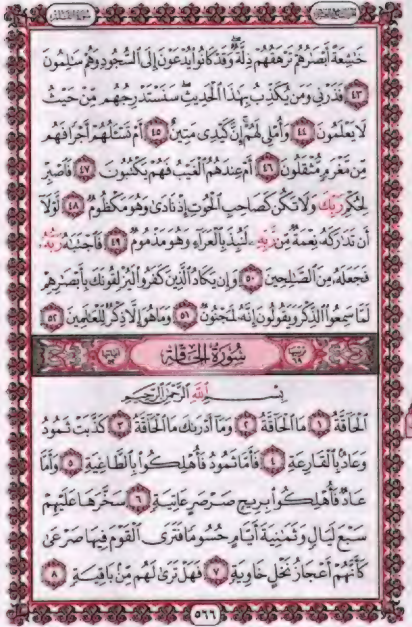 خَٰشِعَةً أَبْصَٰرُهُمْ تَرْهَقُهُمْ ذِلَّةٌ ۖ وَقَدْ كَانُوا۟ يُدْعَوْنَ إِلَى ٱلسُّجُودِ وَهُمْ سَٰلِمُونَ
٤٣ فَذَرْنِى وَمَن يُكَذِّبُ بِهَٰذَا ٱلْحَدِيثِ ۖ سَنَسْتَدْرِجُهُم مِّنْ حَيْثُ
لَا يَعْلَمُونَ ٤٤ وَأُمْلِى لَهُمْ ۚ إِنَّ كَيْدِى مَتِينٌ ٤٥ أَمْ تَسْـَٔلُهُمْ أَجْرًا فَهُم
مِّن مَّغْرَمٍ مُّثْقَلُونَ ٤٦ أَمْ عِندَهُمُ ٱلْغَيْبُ فَهُمْ يَكْتُبُونَ ٤٧ فَٱصْبِرْ
لِحُكْمِ رَبِّكَ وَلَا تَكُن كَصَاحِبِ ٱلْحُوتِ إِذْ نَادَىٰ وَهُوَ مَكْظُومٌ ٤٨ لَّوْلَآ
أَن تَدَٰرَكَهُۥ نِعْمَةٌ مِّن رَّبِّهِۦ لَنُبِذَ بِٱلْعَرَآءِ وَهُوَ مَذْمُومٌ ٤٩ فَٱجْتَبَٰهُ رَبُّهُۥ
فَجَعَلَهُۥ مِنَ ٱلصَّٰلِحِينَ ٥٠ وَإِن يَكَادُ ٱلَّذِينَ كَفَرُوا۟ لَيُزْلِقُونَكَ بِأَبْصَٰرِهِمْ
لَمَّا سَمِعُوا۟ ٱلذِّكْرَ وَيَقُولُونَ إِنَّهُۥ لَمَجْنُونٌ ٥١ وَمَا هُوَ إِلَّا ذِكْرٌ لِّلْعَٰلَمِينَ ٥٢
سُورَةُ الْحَاقَّةِ
بِسْمِ ٱللَّهِ ٱلرَّحْمَٰنِ ٱلرَّحِيمِ
ٱلْحَآقَّةُ ١ مَا ٱلْحَآقَّةُ ٢ وَمَآ أَدْرَىٰكَ مَا ٱلْحَآقَّةُ ٣ كَذَّبَتْ ثَمُودُ
وَعَادٌۢ بِٱلْقَارِعَةِ ٤ فَأَمَّا ثَمُودُ فَأُهْلِكُوا۟ بِٱلطَّاغِيَةِ ٥ وَأَمَّا
عَادٌ فَأُهْلِكُوا۟ بِرِيحٍ صَرْصَرٍ عَاتِيَةٍ ٦ سَخَّرَهَا عَلَيْهِمْ
سَبْعَ لَيَالٍ وَثَمَٰنِيَةَ أَيَّامٍ حُسُومًا فَتَرَى ٱلْقَوْمَ فِيهَا صَرْعَىٰ
كَأَنَّهُمْ أَعْجَازُ نَخْلٍ خَاوِيَةٍ ٧ فَهَلْ تَرَىٰ لَهُم مِّنۢ بَاقِيَةٍ ٨
٥٦٦